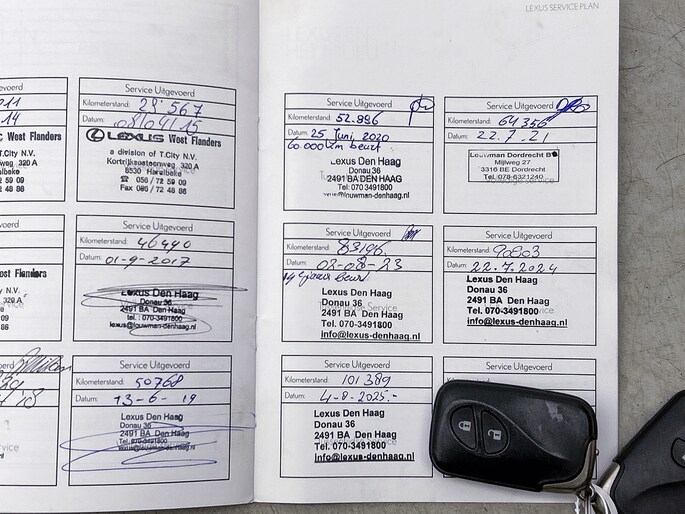 LEXUS SERVICE PLAN
11
14
C West Flanders
T.City N.V.
320 A
72 48 86
ost Flanders
N.V.
320 A
72 48 88
Service Uitgevoerd
Kilometerstand: 29.567
Datum: 08/04/15
LEXUS West Flanders
a division of T.City N.V.
Kortrijksesteenweg 320 A
8530 Harelbeke
056 / 72 59 09
Fax 056 / 72 48 86
Service Uitgevoerd
Kilometerstand: 46440
Datum: 01-9-2017
Lexus Den Haag
Donau 36
2491 BA Den Haag
Tel.: 070-3491800
lexus@louwman-denhaag.nl
Service Uitgevoerd
Kilometerstand: 50768
Datum: 13-6-19
Lexus Den Haag
Donau 36
2491 BA Den Haag
Tel. 070-3491800
lexus@louwman-denhaag.nl
Service Uitgevoerd
Kilometerstand: 52.896
Datum: 25 Juni, 2020
60.000 km beurt
Lexus Den Haag
Donau 36
2491 BA DEN HAAG
Tel: 070-3491800
@louwman-denhaag.nl
Service Uitgevoerd
Kilometerstand: 64356
Datum: 22.7-21
Louwman Dordrecht B
Mijlweg 27
3316 BE Dordrecht
Tel. 078-6321240
Service Uitgevoerd
Kilometerstand: 83196
Datum: 02-08-23
beurt
Lexus Den Haag
Donau 36
2491 BA Den Haag
Tel. 070-3491800
info@lexus-denhaag.nl
Service Uitgevoerd
Kilometerstand: 90803
Datum: 22.7.2024
Lexus Den Haag
Donau 36
2491 BA Den Haag
Tel. 070-3491800
info@lexus-denhaag.nl
Service Uitgevoerd
Kilometerstand: 101389
Datum: 4-8-2025.-
Lexus Den Haag
Donau 36
2491 BA Den Haag
Tel. 070-3491800
info@lexus-denhaag.nl
Service Uitgevoerd